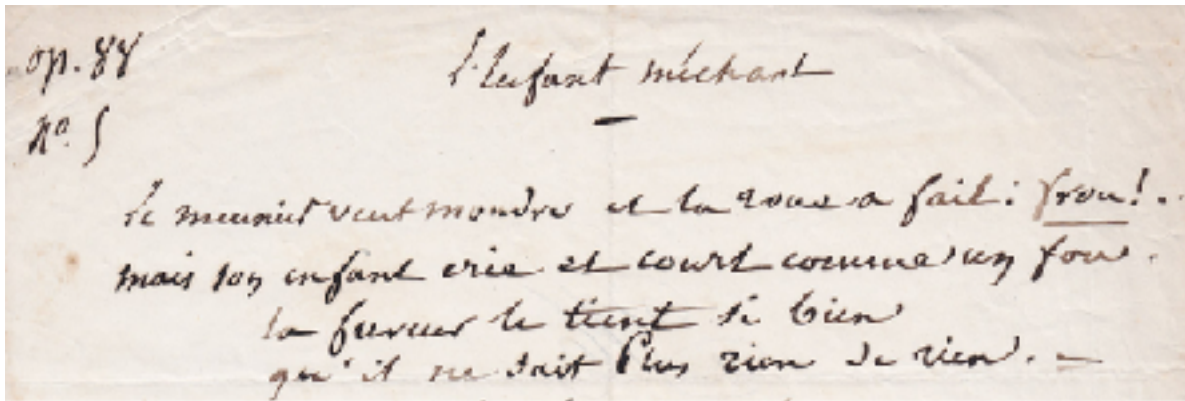 op. 88
L'Enfant méchant
no. 5
Le meunier veut moudre et la roue a fait : frou ! .
mais son enfant crie et court comme un fou .
la fureur le tient si bien
qu'il ne sait Plus rien de rien . —